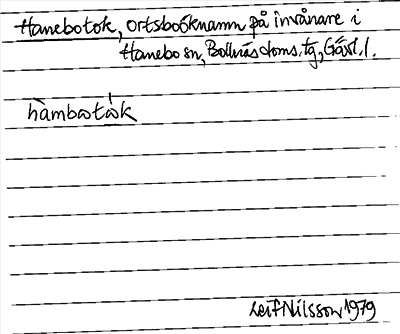 Hanebotok, ortsboöknamn på invånare i
Hanebo sn, Bollnäs doms. tg, Gävl. l.
hàmbotòk
Leif Nilsson 1979